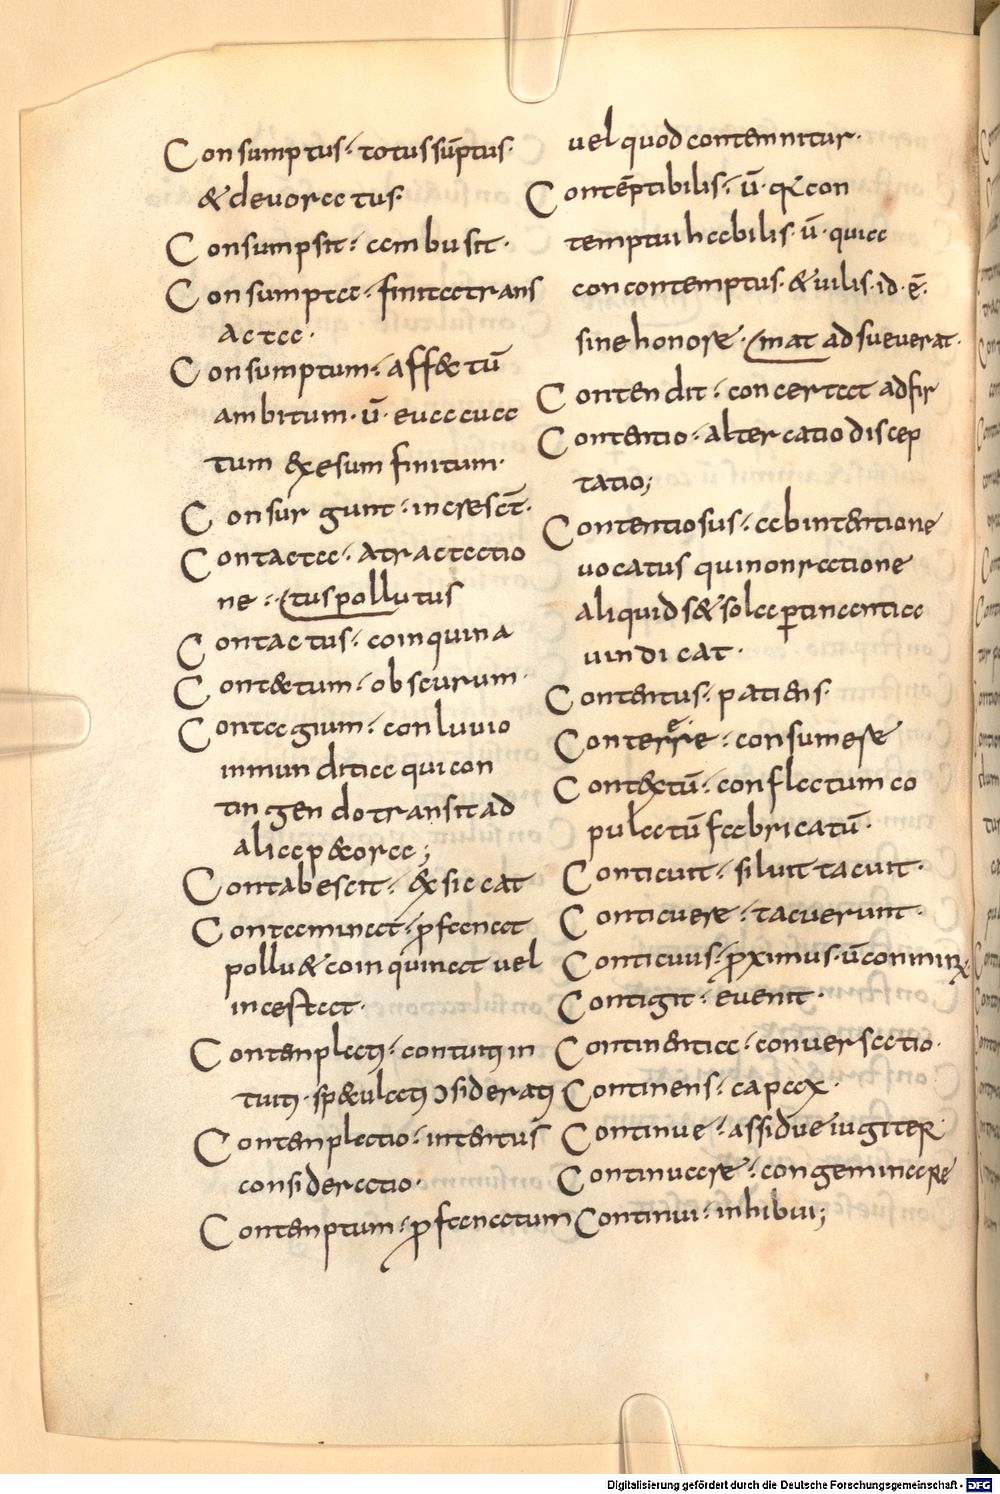 Consumptus· totus sūptus·
& deuoratus·
Consumpsit· combusit·
Consumpta· finita trans
acta·
Consumptum· aff&tū
ambitum· ū· euacua
tum exesum finitum·
Consurgunt· incresc̄t·
Contacta· atractatio
ne· (tus pollutus
Contactus· coinquina
Cont&tum· obscurum·
Contagium· conluuio
inmunditia qui con
tingendo transit ad
alia p&ora;
Contabescit· exsiccat
Contaminat· ꝓfanat
pollu& coinquinat uel
incestat·
Contenplatꝰ· contuitꝰ in
tuitꝰ· sp&ulatꝰ ɔsideratꝰ
Contenplatio· intentus
consideratio·
Contenptum· ꝓfanatum
uel quod contemnitur·
Contēptibilis· ū· q̄ con
temptui habilis· ū· quia
con contemptus· & uilis· id· ē·
sine honore· (mat adsueuerat·
Contendit· concertat adfir
Contentio· altercatio discep
tatio;
Contentiosus· ab intentione
uocatus qui non ratione
aliquid s& sola ꝑtinentia
uindicat·
Contentus· patiens·
Conterrere· consumere
Contextū· conflatum co
pulatū fabricatū·
Conticuit· siluit tacuit·
Conticuere· tacuerunt·
Contiguus· ꝓximus· ū coniunx·
Contigit· euenit·
Continentia· conuersatio·
Continens· capax·
Continue· assidue iugiter
Continuare· congeminare
Continui· inhibui;
Digitalisierung gefördert durch die Deutsche Forschungsgemeinschaft - DFG